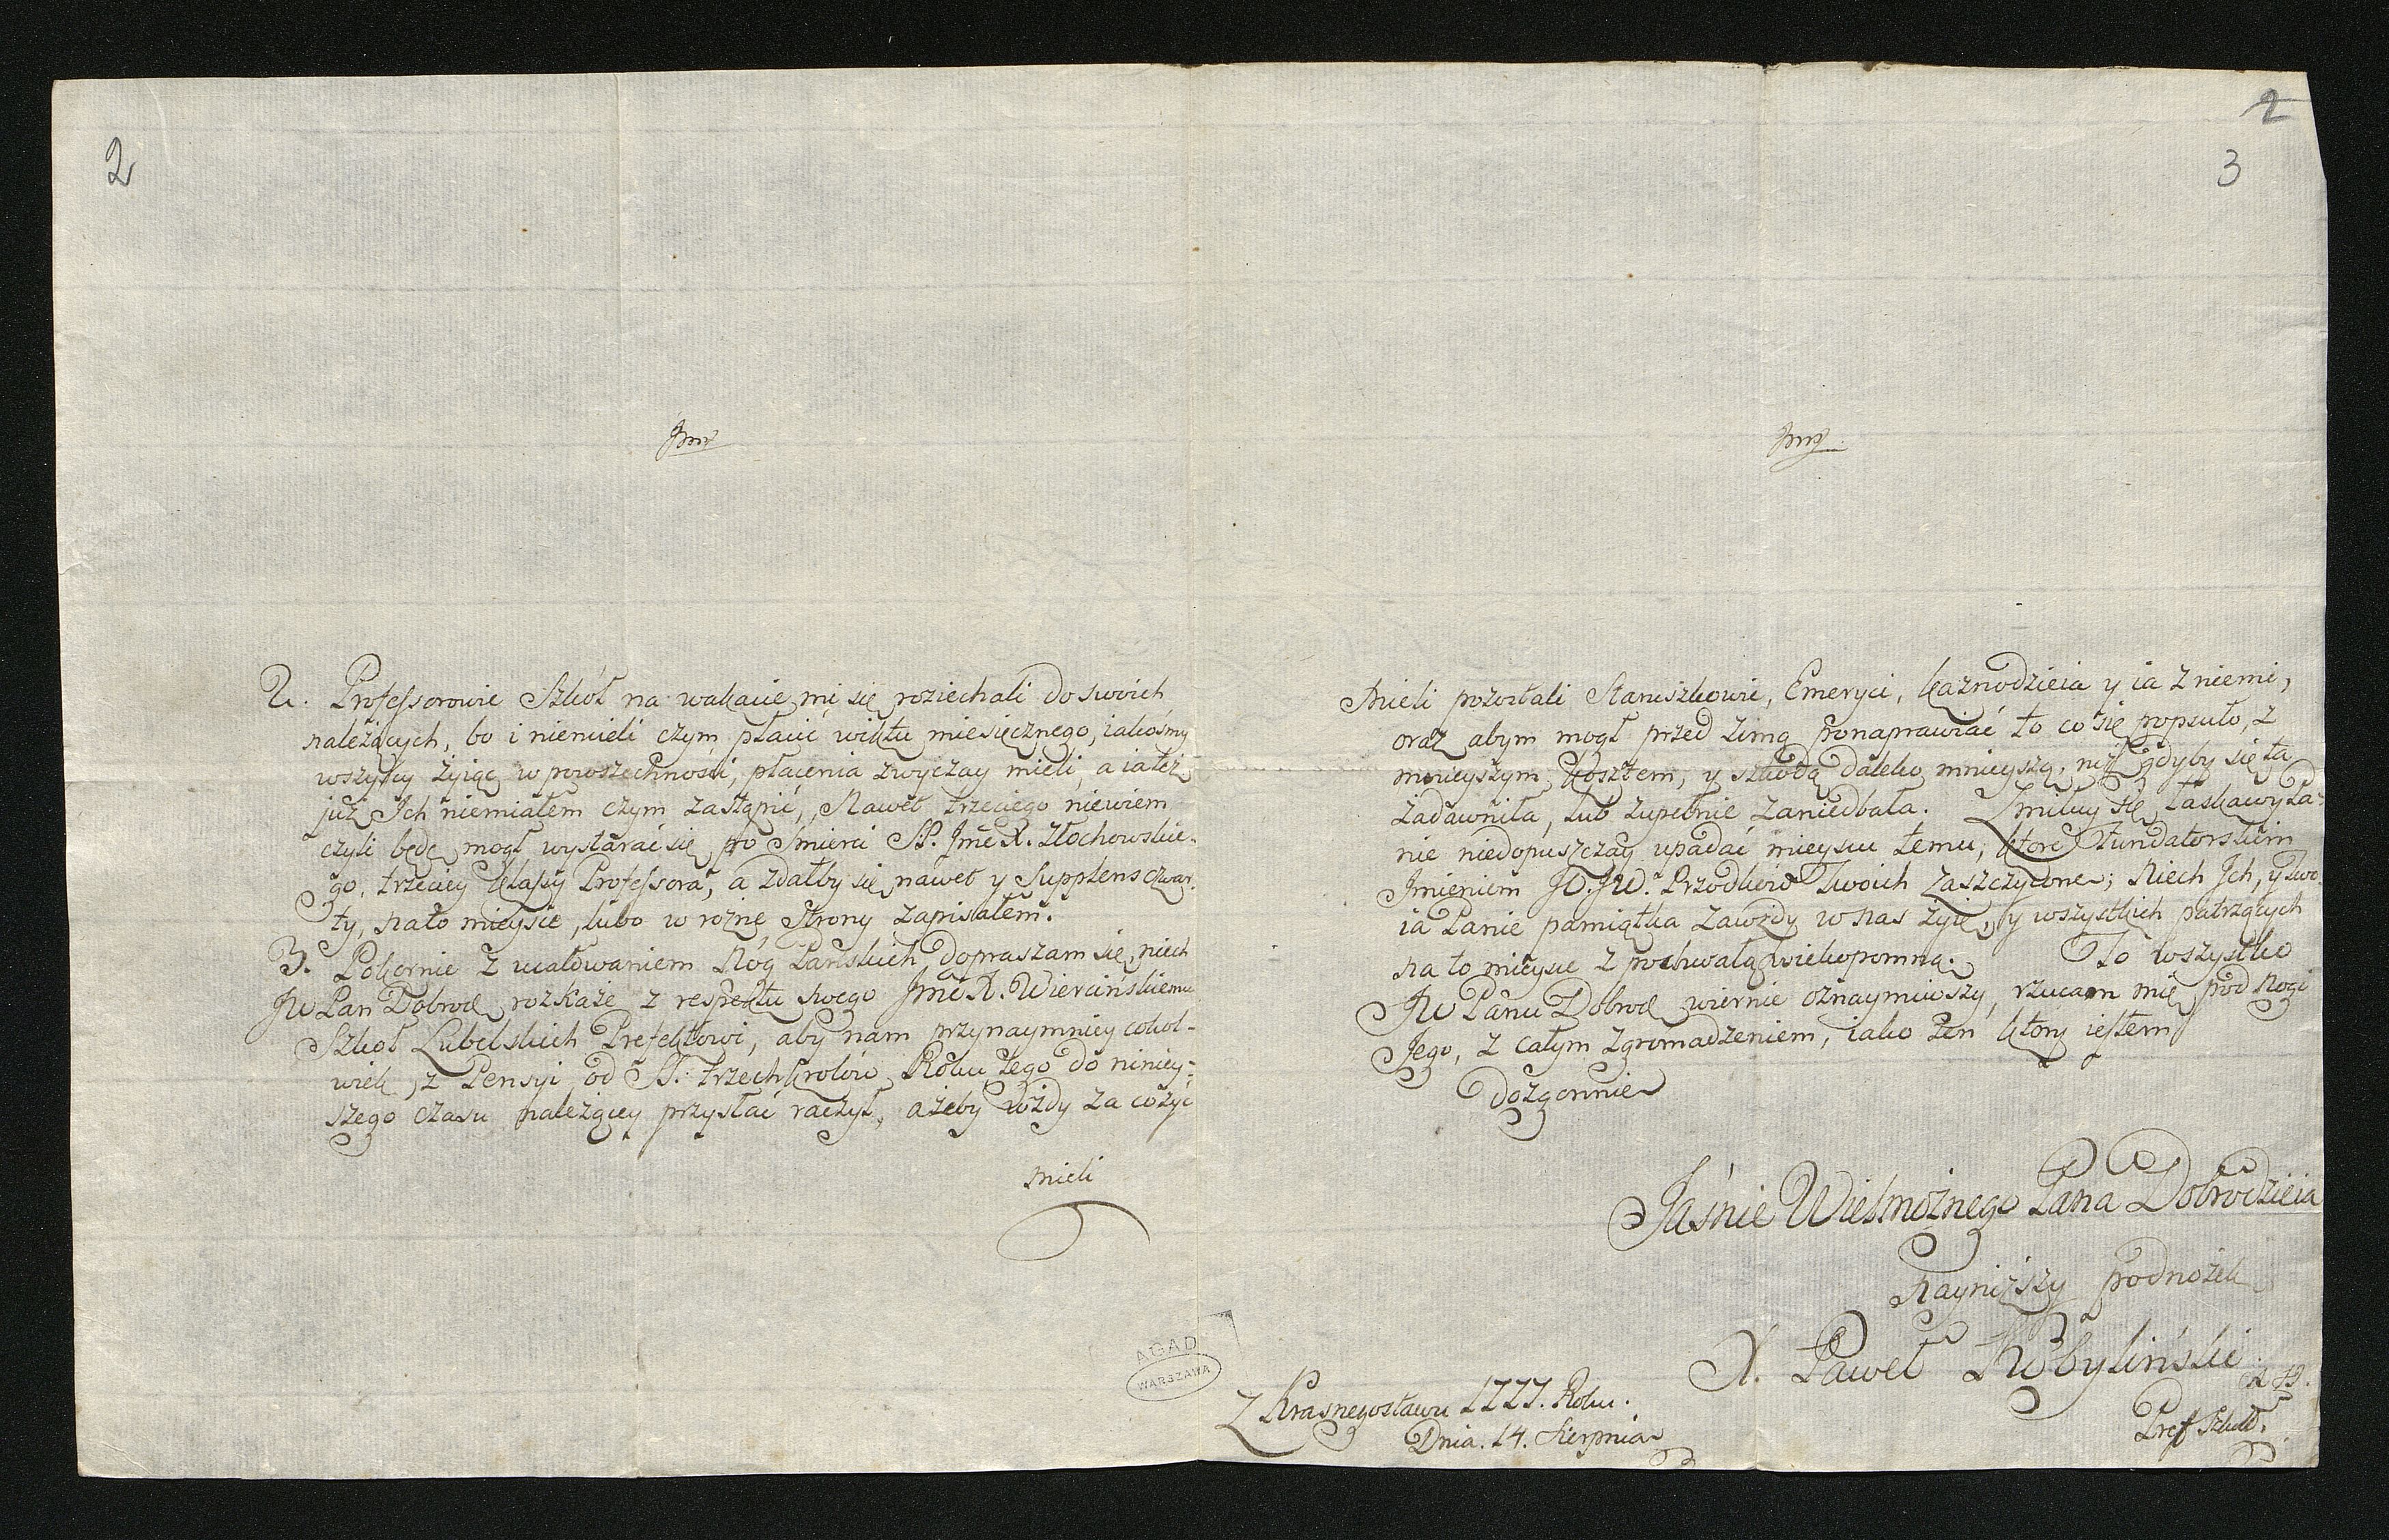 2
Jmć
2. Professorowie Szkół na wakacie mi się roziechali do swoich
należących, bo i niemieli czym płacić wiktu miesięcznego, iakośmy
wszyscy żyiąc w powszechności, płacenia zwyczay mieli, a iateż
już Ich niemiałem czym zastąpić, Nawet trzeciego niewiem
czyli będę mogł wystarać się po śmierci Ś.P. Jmć X. Złochowskie-
go, trzeciey klassy Professora, a zdałby się nawet y Supplens czwar-
ty, na to mieysce, lubo w rożne strony zapisałem.
3. Pokornie z ucałowaniem Nóg Pańskich dopraszam się, niech
JW Pan Dobrodz rozkaże z respektu swego Jmć X. Wiercińskiemu
Szkoł Lubelskich Prefektowi, aby nam przynaymniey cokol-
wiek, z Pensyi od Ś. Trzech Krolów Roku tego do niniey-
szego czasu należącey przysłać raczył, ażeby wżdy za co żyć
mieli
AGAD
WARSZAWA
2
3
Jmć
Mieli pozostali Staruszkowie, Emeryci, kaznodzieia y ia z niemi,
oraz abym mogł przed zimą ponaprawiać to co się popsuło, z
mnieyszym kosztem, y szkodą daleko mnieyszą, niż gdyby się ta
zadawniła, lub zupełnie zaniedbała. Zmiłuy się Łaskawy Pa-
nie niedopuszczay upadać mieyscu temu, ktore Fundatorskim
Jmieniem J.W.JW. Przodkow Twoich zaszczycone; Niech Jch, y Two-
ia Panie pamiątka zawżdy w nas żyie, y wszystkich patrzących
na to mieysce z pochwałą wiekopomną. To wszystko
JW Panu Dobrod wiernie oznaymiwszy, rzucam mię pod Nogi
Jego, z całym zgromadzeniem, iako ten ktory iestem
Dozgonnie
Jaśnie Wielmożnego Pana Dobrodzieia
Nayniższy podnożek
X. Paweł Kobyliński
Pref Szkoł.
Z Krasnegostawu 1777. Roku.
Dnia. 14. Sierpnia